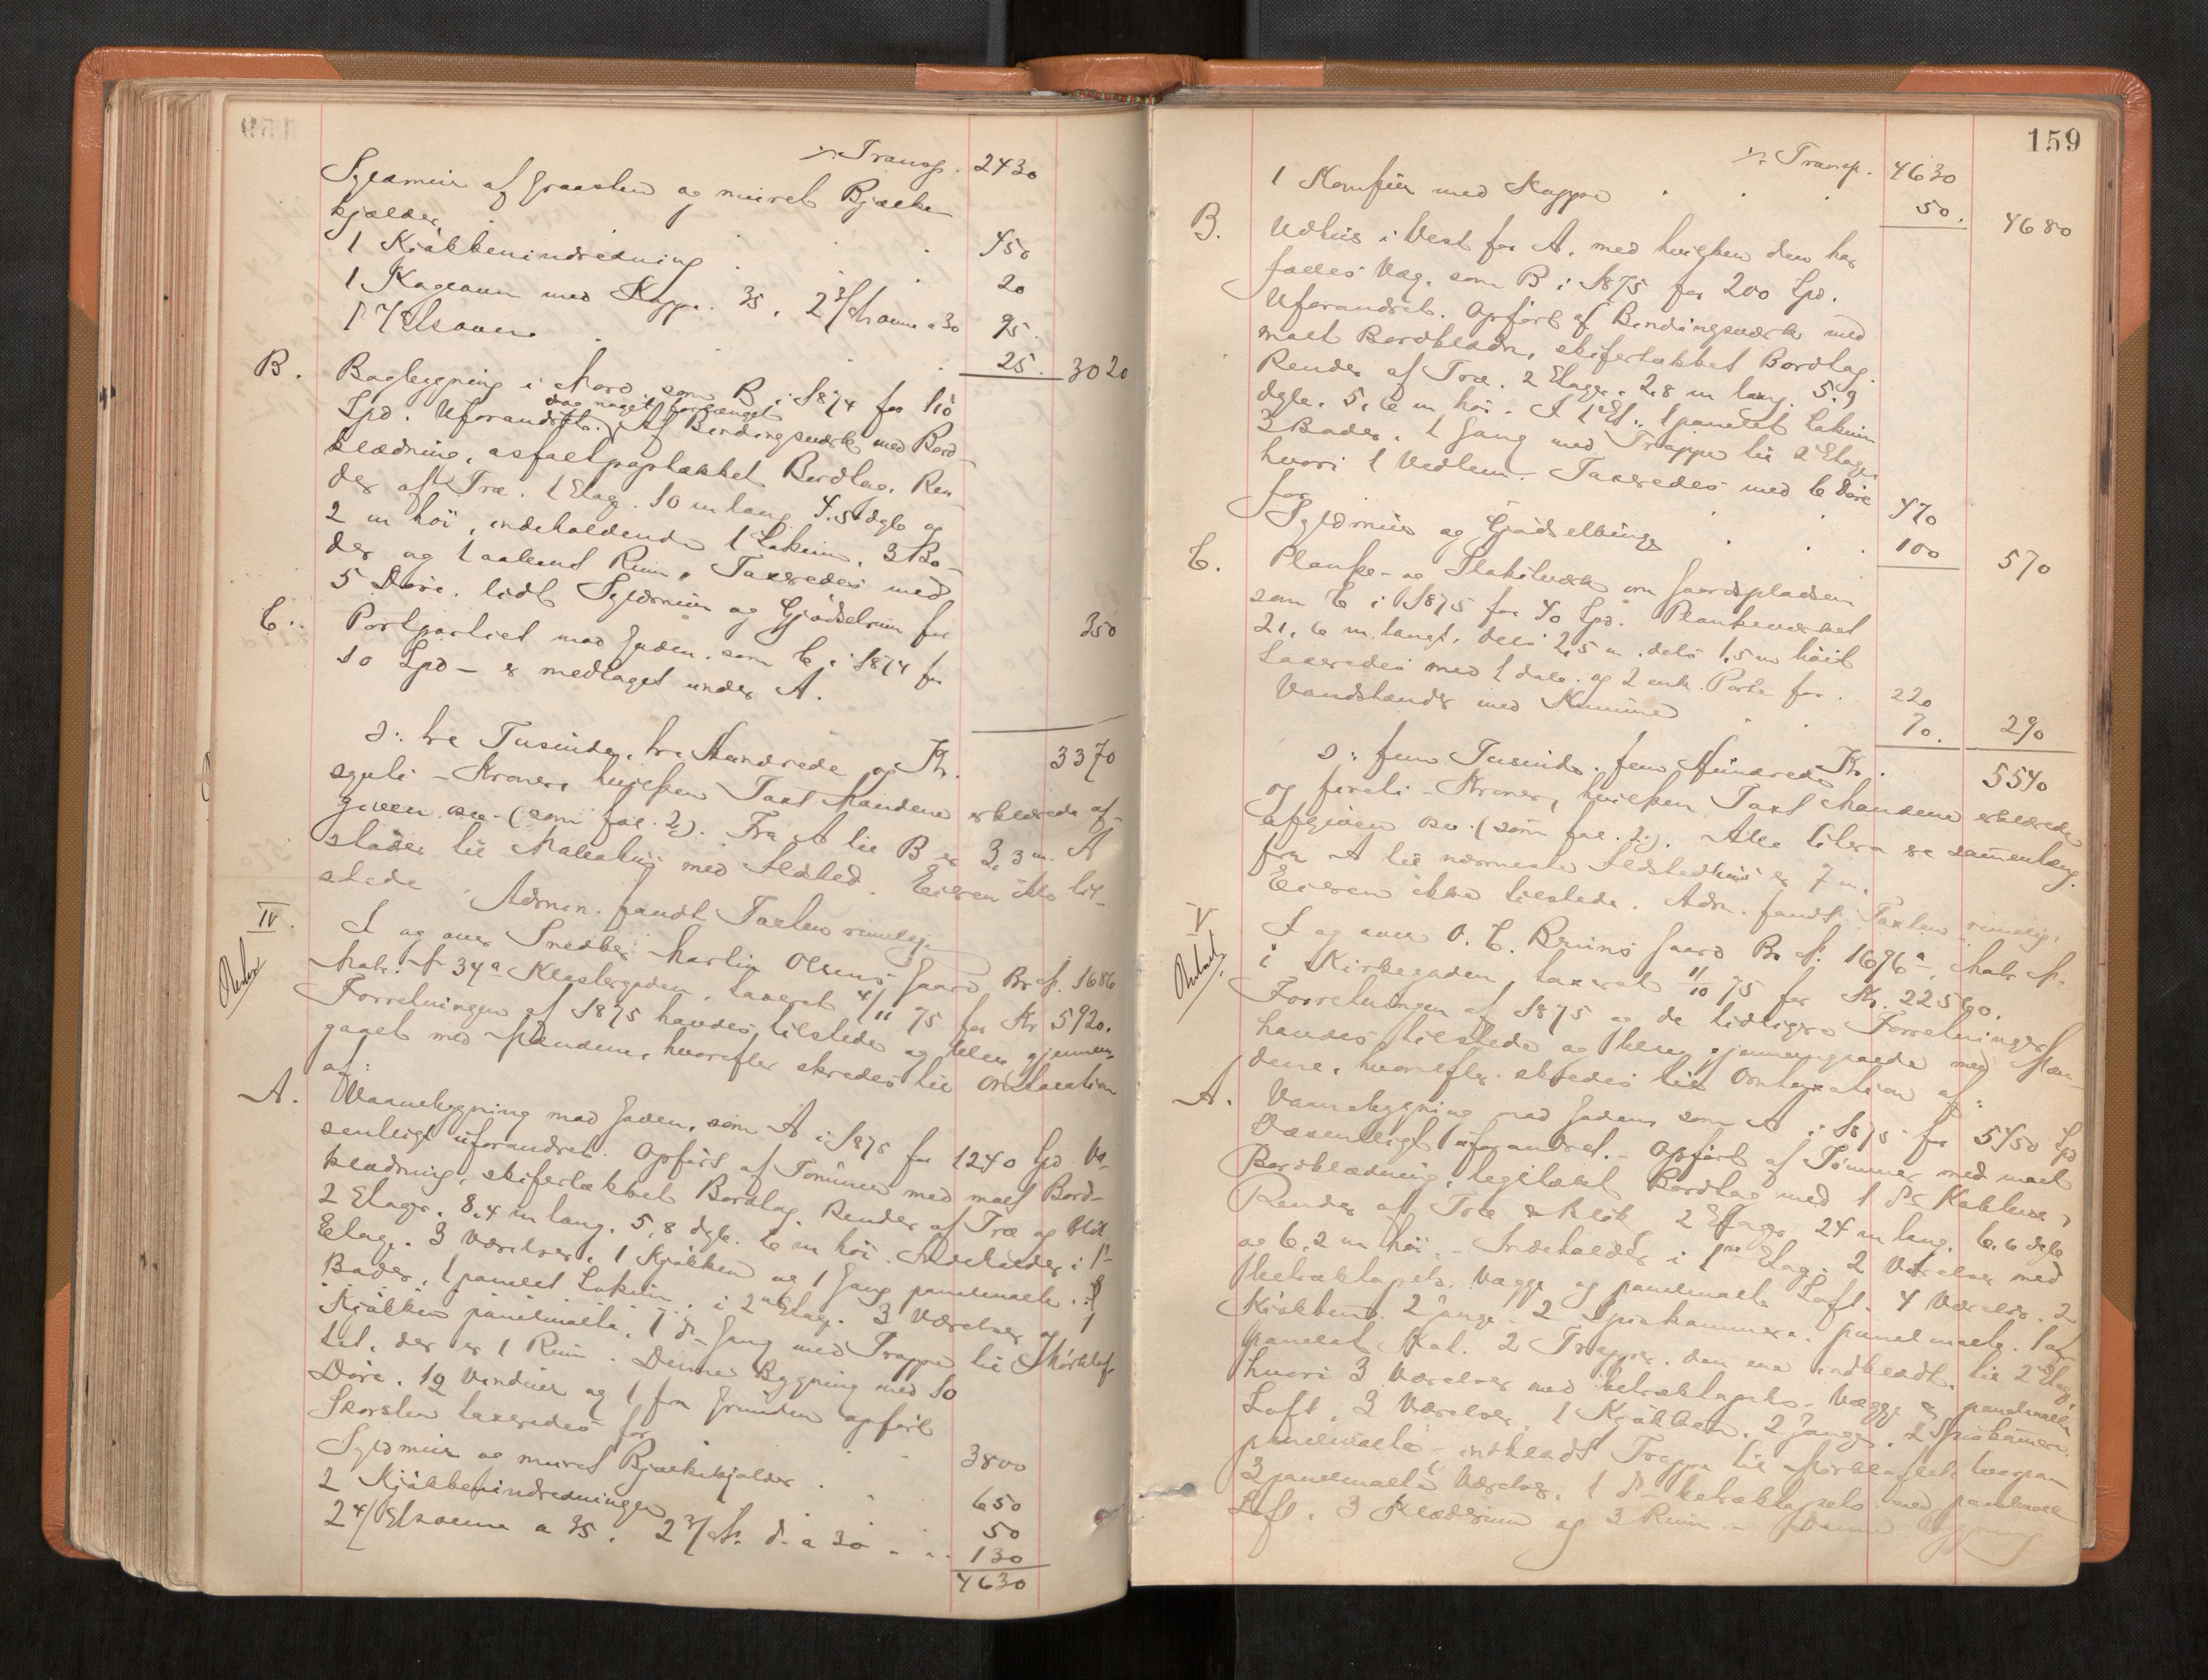 ·/. Transp. 2430
Syldmuur af Graasten og muret Bjælke-
kjælder 450
1 Kjøkkenindredning 20
1 Kageovn med Kappe 35, 2 3/Et.ovne a 30 95.
1 4/Etsovn 25. 3020
B. Bagbygning i Nord, som B i 1874 for 110
Spd. Uforandret. dog noget forlænget Af Bindingsværk med Bord-
klædning, asfaltpaptækket Bordtag, Ren-
der af Træ. 1 Etag. 10 m lang 4.5 dyb og
2 m høi, indeholdende 1 Lokum, 3 Bo-
der og 1 aabent Rum, Taxeredes med
5 Døre, lidt Syldmuur og Gjødselrum for 350
C. Portpartiet mod Gaden, som C i 1874 for
10 Spd – er medtaget under A.
3370
ɔ: tre Tusinde, tre Hundrede og Kr.
sytti - Kroner, hvilken Taxt Mændene erklærede af-
given osv. (som fol. 2). Fra A til B er 3,3 m. A
støder til Nabohus med Ildsted. Eieren ikke til-
stede Admin. fandt Taxten rimelig.
IV. I og over Snedker Martin Olsens Gaard Br. N. 1686
Matr. N 34a Klostergaden, taxeret 4/11 75 for Kr 5920.
Forretningen af 1875 havdes tilstede og blev gjennem-
gaaet med Mændene, hvorefter skredes til Omtaxation
af:
A. Vaanebygning mod Gaden, som A i 1875 for 1240 Spd. Væ-
sentligt uforandret. Opført af Tømmer med malt Bord-
klædning, skifertækket Bordtag. Render af Træ og Blik.
2 Etager. 8,4 m lang. 5,8 dyb. 6 m høi. Indeholder i 1ste
Etag. 3 Værelser, 1 Kjøkken og 1 Gang panelmalte, 2
Boder, 1 panelet Lokum, i 2den Etag. 3 Værelser og 1
Kjøkken panelmalte, 1 do Gang med Trappe til Mørklof-
tet, der er 1 Rum. Denne Bygning med 10
Døre, 12 Vinduer og 1 fra Grunden opført
Skorsten taxeredes for 3800
Syldmuur og muret Bjælkekjælder 650
2 Kjøkkenindredninger 50
2 4/Etsovne a 35. 2 3/Et. do a 30 130
4630
159
·/. Transp. 4630
1 Komfur med Kappe 50. 4680
B. Udhus i Vest for A. med hvilken den har
fælles Væg, som B i 1875 for 200 Spd.
Uforandret. Opført af Bindingsværk med
malt Bordklædn, skifertækket Bordtag.
Render af Træ. 2 Etager. 2,8 m lang. 5,9
dyb. 5,6 m høi. I 1ste Et. 1 panelet Lokum
3 Boder. 1 Gang med Trappe til 2 Etage,
hvori 1 Vedlem. Taxeredes med 6 Døre
for 470
Syldmuur og Gjødselbinge 100 570
C. Planke- og Stakitværk om Gaardspladsen
som C i 1875 for 40 Spd. Plankeværket
21,6 m. langt, dels 2,5 m. dels 1,5 m høit
taxeredes med 1 dob. og 2 enk. Porte for 220
Vandstander med Kumme 70. 290
Kr. 5540
ɔ: fem Tusinde, fem Hundrede
og fireti - Kroner, hvilken Taxt Mændene erklærede
afgiven osv. (som fol. 2). Alle Litera er sammenhæng.
fra A til nærmeste Ildstedhus er 7 m.
Eieren ikke tilstede. Adm. fandt Taxten rimelig.
V I og over O. C. Bruns Gaard Br. N. 1676a, Matr. N.
i Kirkegaden, taxeret 11/10 75 for Kr. 22560.
Forretningen af 1875 og de tidligere Forretninger
havdes tilstede og blev gjennemgaaede med Mæn-
dene, hvorefter skredes til Omtaxation af:
A. Vaanebygning mod Gaden, som A i 1875 for 5450 Spd
Væsentligt uforandret. – Opført af Tømmer med malt
Bordklædning, teglstækt Bordtag med 1 do Kobbhus,
Render af Træ & Blik, 2 Etager 24 m lang. 6,6 dyb
og 6,2 m høi. – Indeholder i 1ste Etag. 2 Værelser med
betræktapets. Vægge og panelmalte Loft. 4 Værelser, 2
Kjøkkener, 2 Gange, 2 Spiskammere, panelmalte. 1
panelet Kot. 2 Trapper, den ene indklædt, til 2 Etag,
hvori 3 Værelser med betræktapets. Vægge & panelmalte
Loft, 3 Værelser, 1 Kjøkken, 2 Gange, 2 Spiskamere
panelmalte – indklædt Trappe til Mørkloftet hvorpaa
3 panelmalte Værelser, 1 do betræktapets. med panelmalt
Loft, 3 Klæderum og 3 Rum. – Denne Bygning